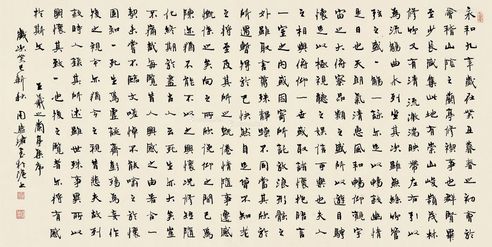 永和九年歲在癸丑暮春之初會於
會稽山陰之蘭亭修禊事也群賢畢
至少長咸集此地有崇山峻嶺茂林
修竹又有清流激湍映帶左右引以
為流觴曲水列坐其次雖無絲竹管
弦之盛一觴一詠亦足以暢敘幽情
是日也天朗氣清惠風和暢仰觀宇
宙之大俯察品類之盛所以遊目騁
懷足以極視聽之娛信可樂也夫人
之相與俯仰一世或取諸懷抱悟言
一室之內或因寄所託放浪形骸之
外雖趣舍萬殊靜躁不同當其欣於
所遇暫得於己快然自足不知老之將
至及其所之既倦情隨事遷感
慨係之矣向之所欣俛仰之間已為
陳迹猶不能不以之興懷況修短隨
化終期於盡古人云死生亦大矣豈
不痛哉每覽昔人興感之由若合一
契未嘗不臨文嗟悼不能喻之於懷
固知一死生為虛誕齊彭殤為妄作
後之視今亦猶今之視昔悲夫故列
敘時人錄其所述雖世殊事異所以
興懷其致一也後之覽者亦將有感
於斯文 王羲之蘭亭集序
歲次癸巳新秋 周 書於滬上